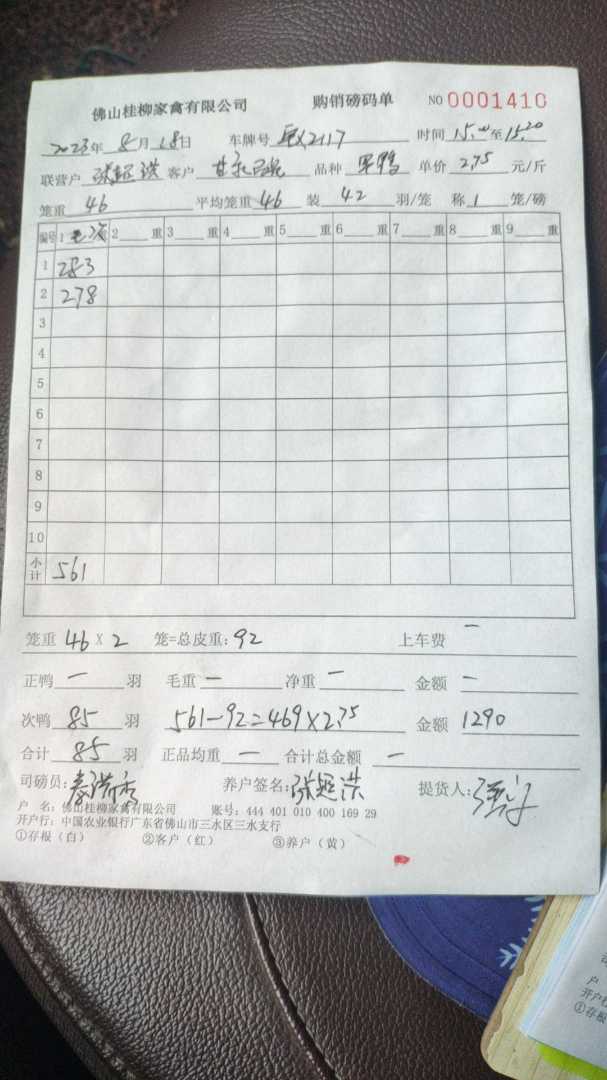 佛山桂柳家禽有限公司 购销磅码单 NO 0001410
2023年 8月 18日 车牌号 X2117 时间 15.00至15.20
联营户 张超洪 客户 品种 单价 2.75 元/斤
笼重 46 平均笼重 46 装 42 羽/笼 称 1 笼/磅
编号 1 重 2 重 3 重 4 重 5 重 6 重 7 重 8 重 9 重
1 283
2 278
3
4
5
6
7
8
9
10
小计 561
笼重 46 x 2 笼=总皮重: 92 上车费 —
正鸭 — 羽 毛重 — 净重 — 金额 —
次鸭 85 羽 561-92=469×2.75 金额 1290
合计 85 羽 正品均重 — 合计总金额 —
司磅员: 养户签名: 张超洪 提货人:
户 名: 佛山桂柳家禽有限公司 账号: 444 401 010 400 169 29
开户行: 中国农业银行广东省佛山市三水区三水支行
①存根 (白) ②客户 (红) ③养户 (黄)
户
开户行
①存根